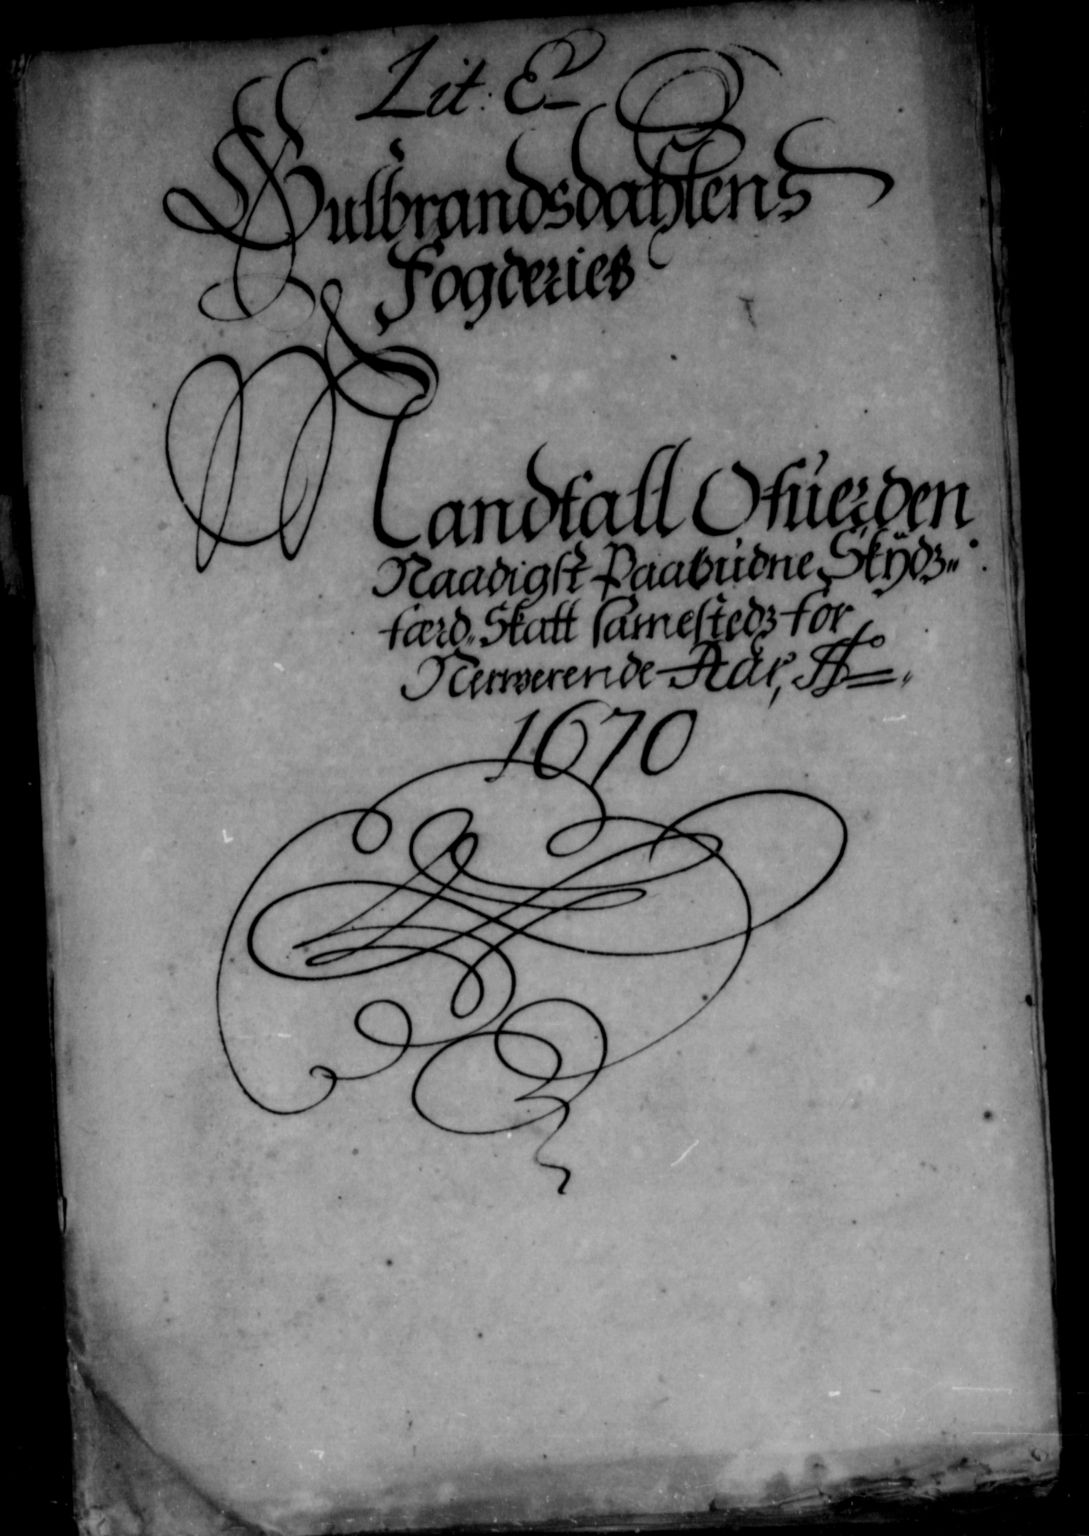 Lit: E
Gulbrandsdahlens
Fogderies
Mandtall Ofuer den
Naadigst Paabudne Skÿdz-
færd Skatt samestedz for
Nerwerende Aar, A̅o̅
1670